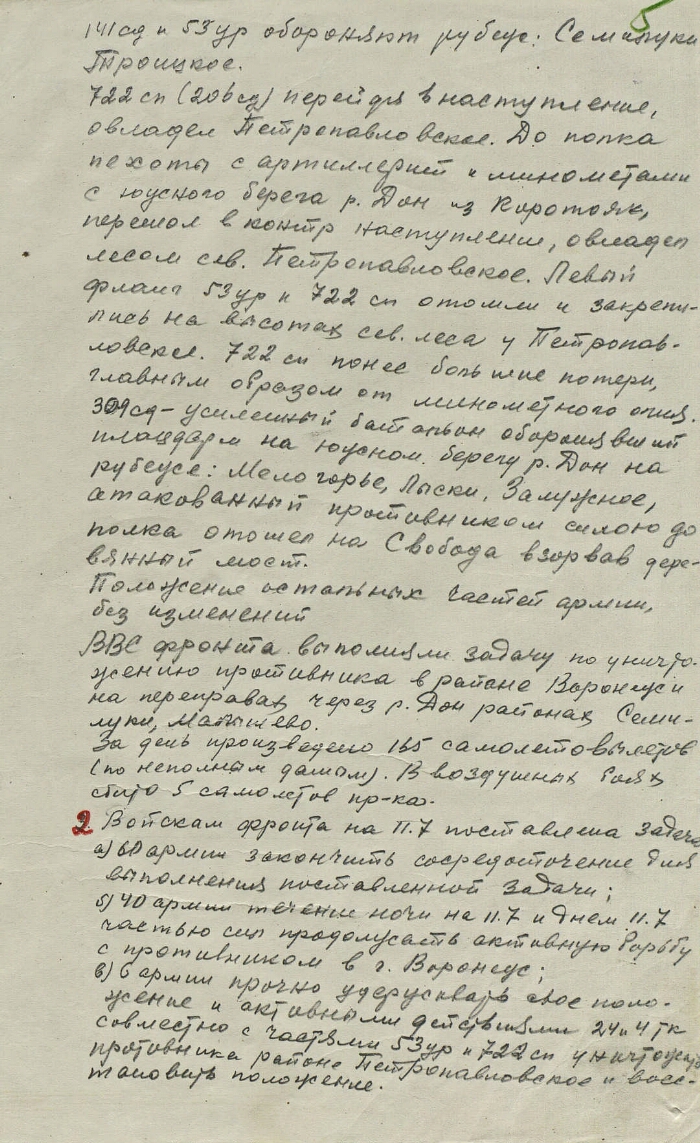 5
141 сд и 53 ур обороняют рубеж: Семилуки
Троицкое.
722 сп (206 сд) перейдя в наступление,
овладел Петропавловское. До полка
пехоты с артиллерией и минометами
с южного берега р. Дон из Коротояк,
перешол в контр наступление, овладел
лесом сев. Петропавловское. Левый
фланг 53 ур и 722 сп отошли и закрепи-
лись на высотах сев. леса у Петропав-
ловское. 722 сп понес большие потери,
главным образом от минометного огня.
309 сд - усиленный батальон оборонявший
плацдарм на южном берегу р. Дон на
рубеже: Мелогорье, Лыски, Залужное,
атакованный противником силою до
полка отошел на Свобода взорвав дере-
вянный мост.
Положение остальных частей армии,
без изменений
ВВС фронта выполняли задачу по уничто-
жению противника в районе Воронеж и
на переправах через р. Дон районах Семи-
луки, Малышево.
За день произведено 165 самолетовылетов
(по неполным данным). В воздушных боях
сбито 5 самолетов пр-ка.
2 Войскам фронта на 11.7 поставлена задача
а) 60 армии закончить сосредоточение для
выполнения поставленной задачи;
б) 40 армии течение ночи на 11.7 и днем 11.7
частью сил продолжать активную борьбу
с противником в г. Воронеж;
в) 6 армии прочно удерживать свое поло-
жение и активными действиями 24 и 4 тк
совместно с частями 53 ур и 722 сп уничтожить
противника районе Петропавловское и восс-
тановить положение.